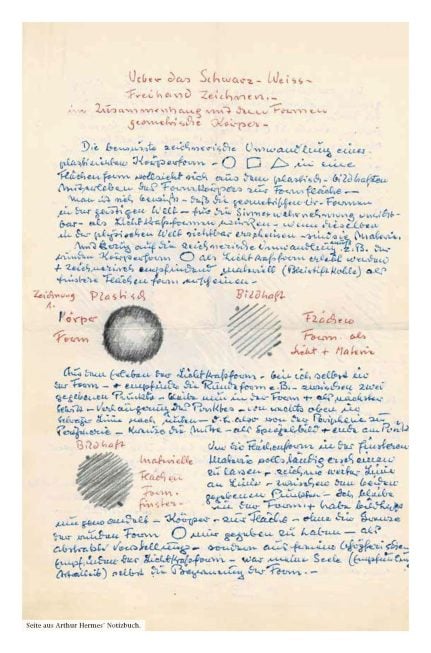 Ueber das Schwarz-Weiss-
Freihand Zeichnen.-
im Zusammenhang mit den Formen
geometrische Körper.-
Die bewusste zeichnerische Umwandlung einer
plastischen Körperform - in eine
Flächenform vollzieht sich aus dem plastisch - bildhaften
Miterleben des Formkörpers zur Formfläche. -
Man ist sich bewusst - daß die geometrischen Ur-Formen
in der geistigen Welt - für die Sinneswahrnehmung unsicht-
bar - als Lichtkraftformen - wenn dieselben
in der physischen Welt sichtbar erscheinen - Materie.
In Bezug auf die zeichnerische Umwandlung z.B. der
runden Körperform als Lichtkraftform erlebt werden
+ zeichnerisch empfindend materiell (Bleistift Kohle) als
finstere Flächen form
Zeichnung
1.
Plastisch
Körper
Form
Bildhaft
Flächen
Form. als
Licht + Materie
Aus dem Erleben der Lichtkraftform - bin ich selbst in
der Form - + empfinde die Rundeform z.B. - zwischen zwei
gegebenen Punkten - bleibe nun in der Form + als nächster
Schritt - Verlängerung des Punktes - von rechts oben in
schräge Linie nach unten - d.h. also von der Peripherie zu
Peripherie - kreuze die Mitte - als Spiegelbild + ende am Punkt
Bildhaft
materielle
Flächen
Form.
finster -
Um die Flächenform in der finsteren
Materie vollständig erscheinen
zu lassen - zeichne weiter Linie
an Linie - zwischen den beiden
gegebenen Punkten - ich bleibe
in der Form + habe bildhaft
umgewandelt - Körper - zur Fläche - ohne die Grenze
der runden Form nur gegeben zu haben - als
abstrakte Vorstellung - sondern aus freiem
Empfinden der Lichtkraftform - war meine Seele (Empfindung
selbst die Begrenzung der Form. -
Seite aus Arthur Hermes' Notizbuch.